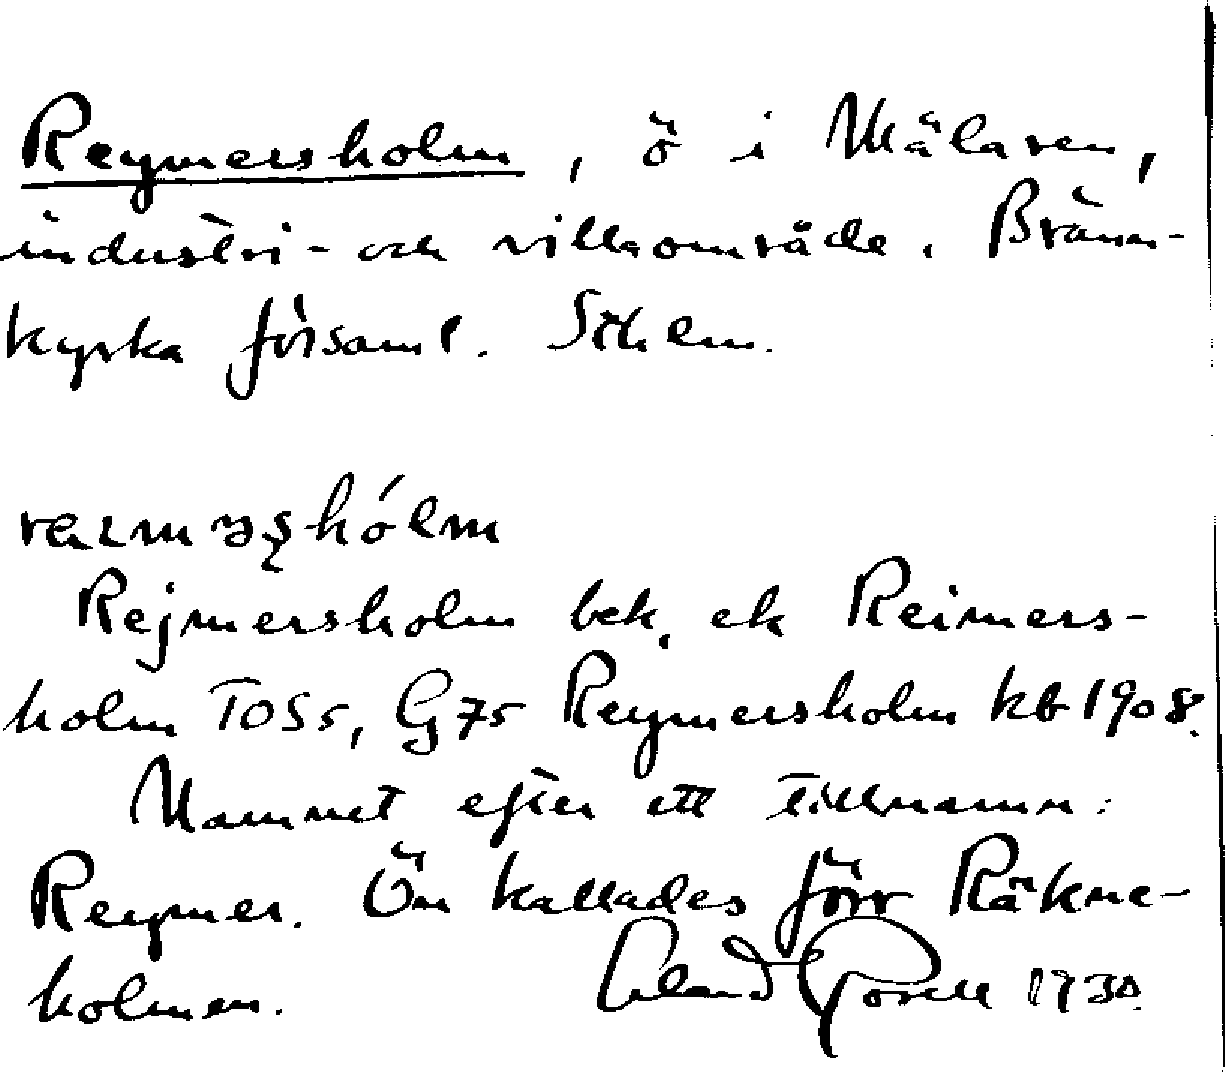 Reymersholm, ö i Mälaren,
industri- och villaområde. Bränn-
kyrka församl. Sthlm.
Rejmersholm bek, ek Reimers-
holm TOS5, G75 Reymersholm kb 1908.
Namnet efter ett tillnamn:
Reymer. Ön kallades förr Räkne-
holmen. 1930.